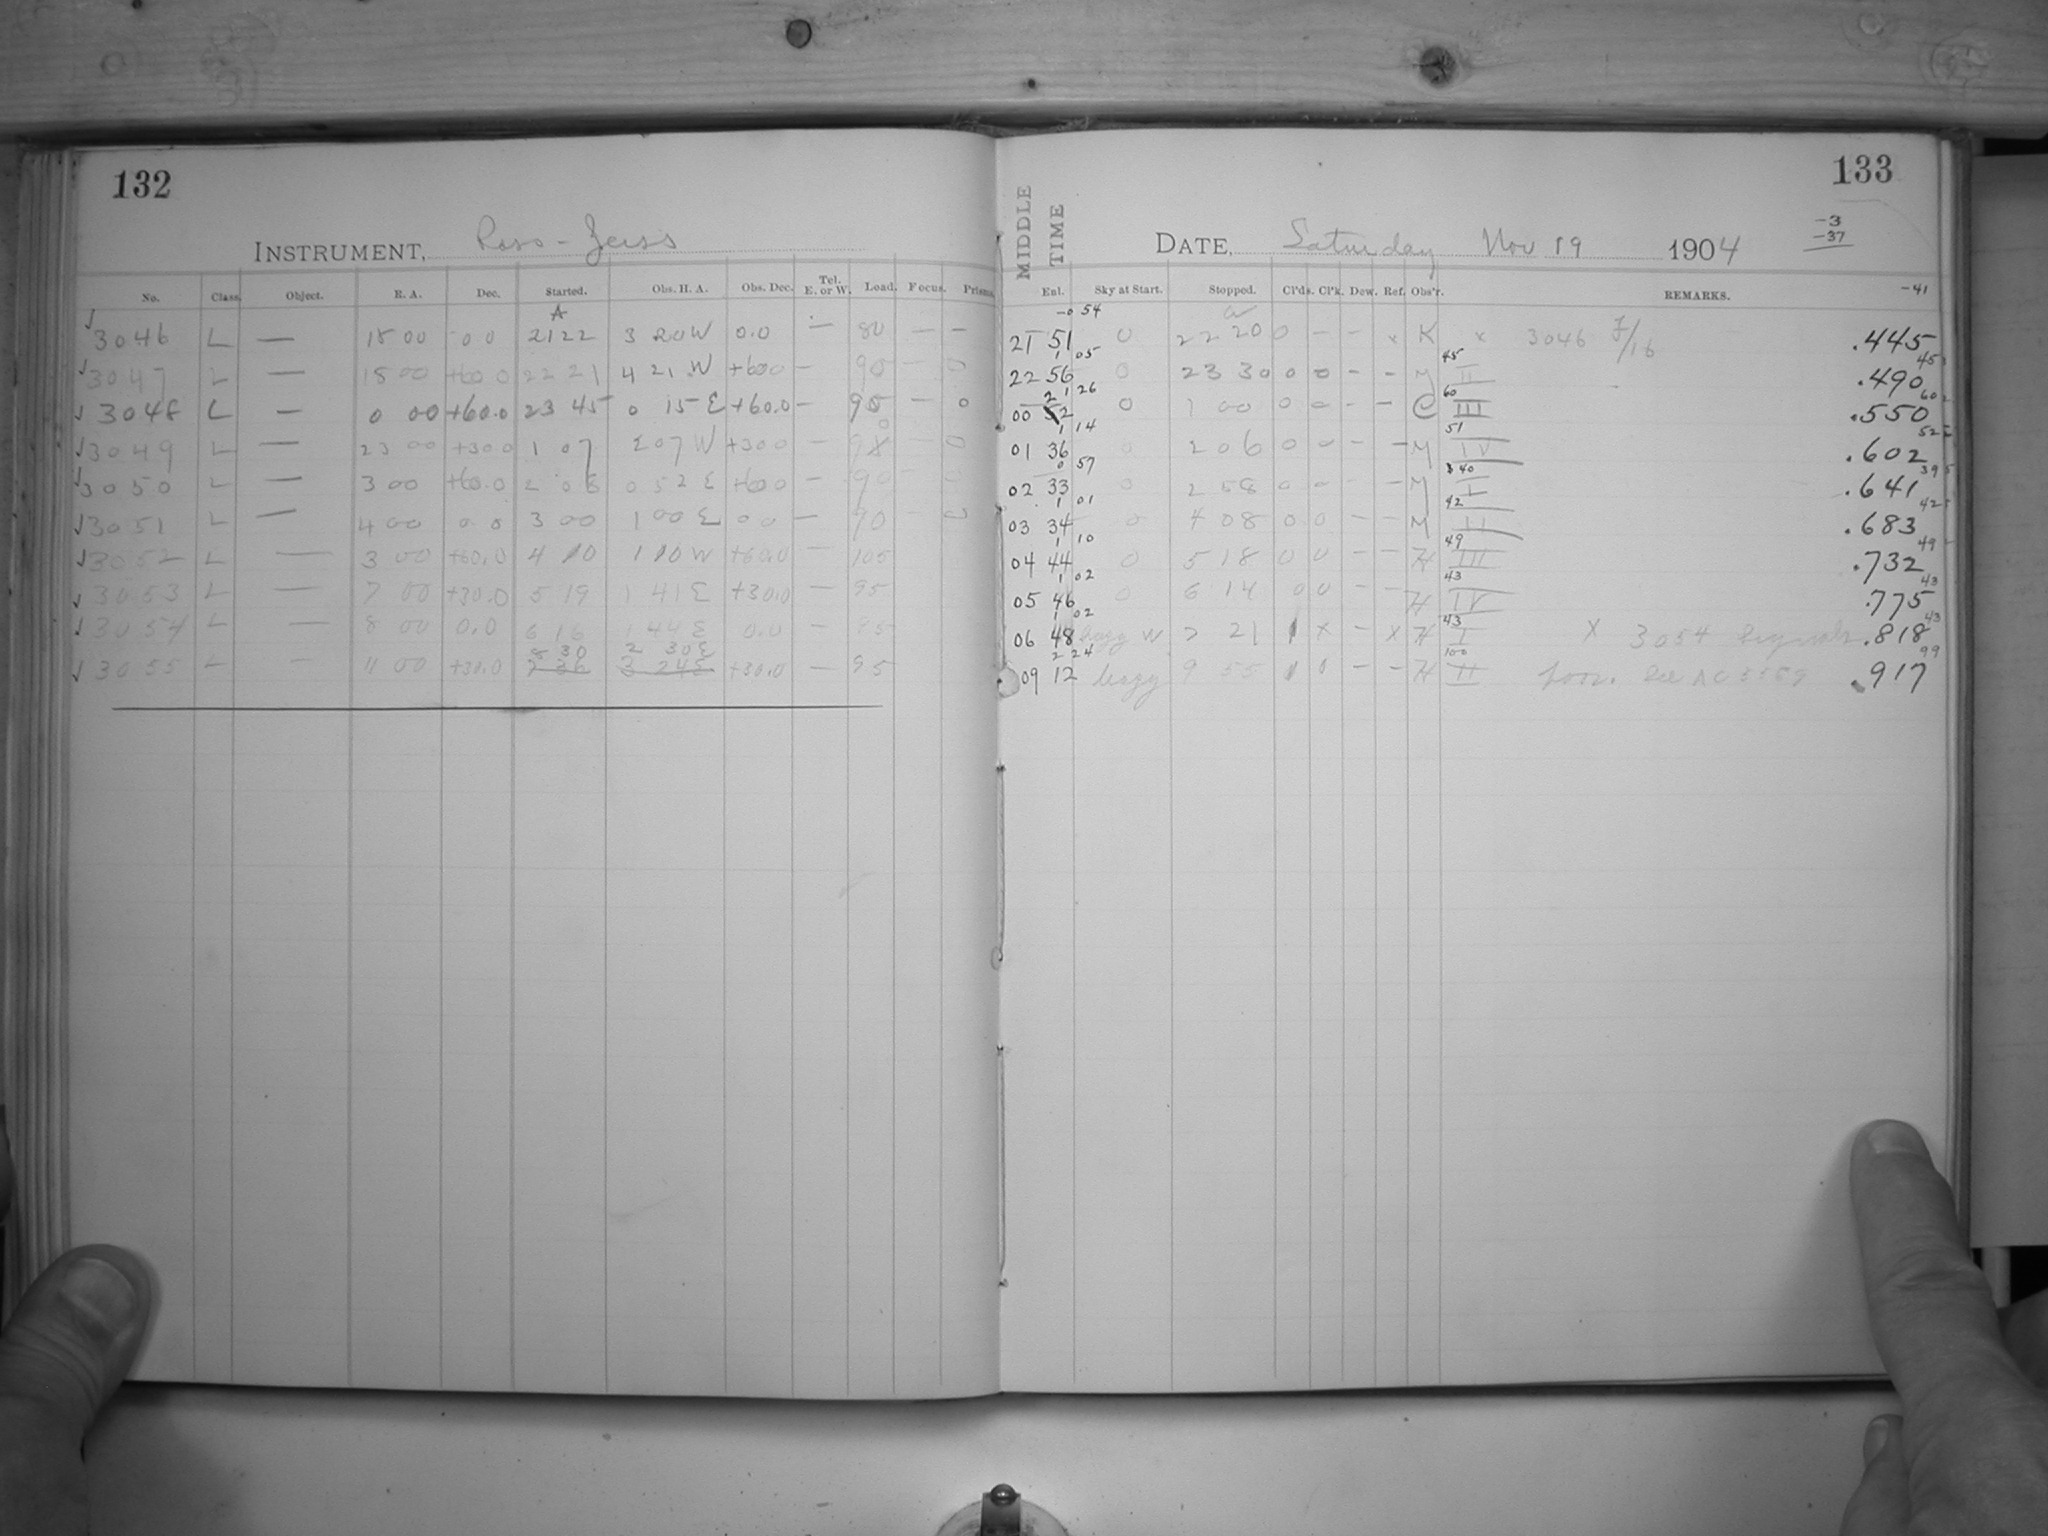 132
INSTRUMENT, Ross-Zeiss
No. Class. Object. R. A. Dec. Started. Obs. H. A. Obs. Dec. Tel. E. or W. Load. Focus. Prisms.
A
3046 L — 18 00 0 0 21 22 3 20 W 0.0 — 80 — —
3047 L — 18 00 +60 0 22 21 4 21 W +60 0 — 90 — 0
3048 L — 0 00 +60.0 23 45 0 15 E +60.0 — 95 — 0
3049 L — 23 00 +30 0 1 07 2 07 W +30 0 — 98 — 0
3050 L — 3 00 +60.0 2 08 0 52 E +60 0 — 90
3051 L — 4 00 0 0 3 00 1 00 E 0 0 — 90
3052 L — 3 00 +60.0 4 10 1 10 W +60.0 — 105
3053 L — 7 00 +30.0 5 19 1 41 E +30.0 — 95
3054 L — 8 00 0.0 6 16 1 44 E 0.0 — 95
8 30 2 30 E
3055 L — 11 00 +30.0 7 36 3 24 E +30.0 — 95
133
MIDDLE TIME
DATE, Saturday Nov 19 1904
-3
-37
Enl. Sky at Start. Stopped. Cl'ds. Cl'k. Dew. Ref. Obs'r. REMARKS.
-41
-0 54
21 51 0 22 20 0 — — x K x 3046 F/16 .445
1 05 45
22 56 0 23 30 0 0 — — M II .490
1 26 60
00 22 0 1 00 0 0 — — C III .550
1 14 51
01 36 0 2 06 0 0 — — M IV .602
0 57 40
02 33 0 2 58 0 0 — — M I .641
1 01 42
03 34 0 4 08 0 0 — — M II .683
1 10 49
04 44 0 5 18 0 0 — — H III .732
1 02 43
05 46 0 6 14 0 0 — — H IV .775
1 02 43
06 48 hazy W 7 21 1 x — x H I X 3054 .818
2 24 100 99
09 12 hazy 9 55 1 0 — — H II poor. See AC 5559 .917